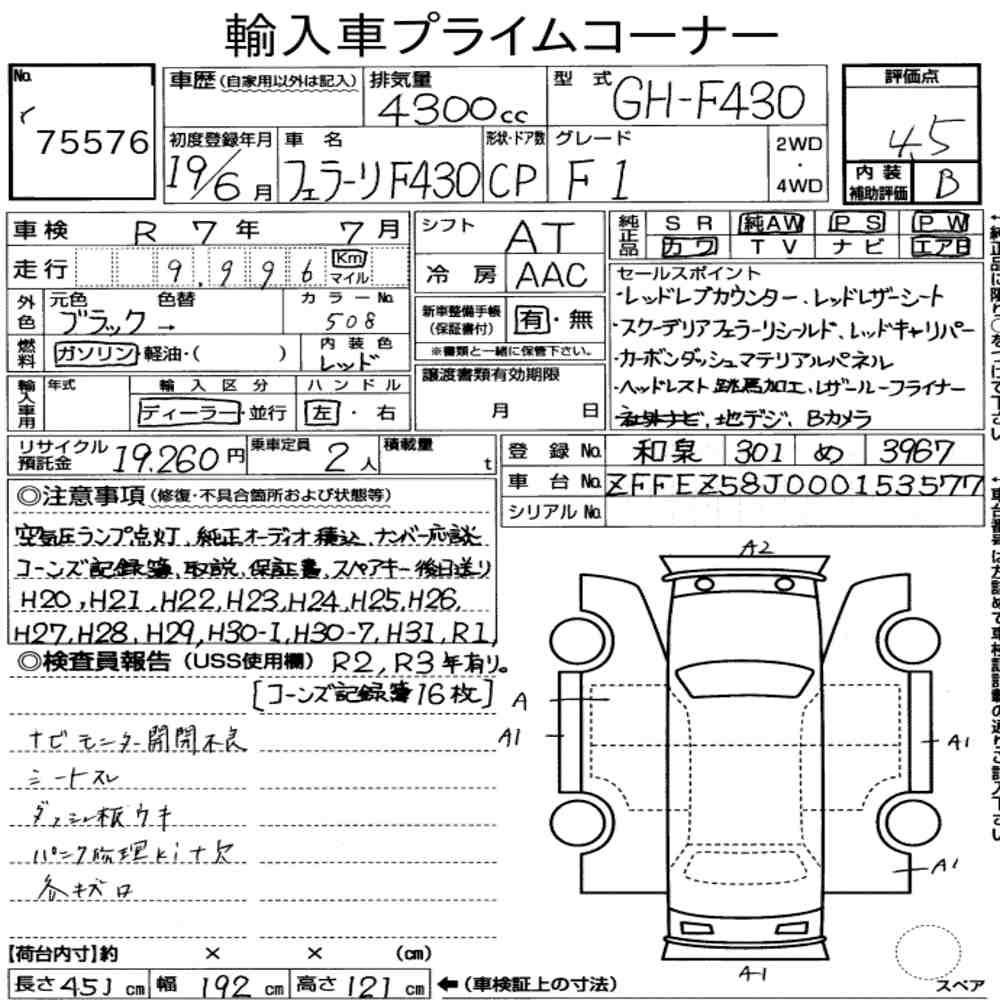 輸入車プライムコーナー
No. 75576
車歴(自家用以外は記入) 排気量 4300cc 型式 GH-F430 評価点 4.5
初度登録年月 19/6月 車名 フェラーリF430 形状・ドア数 CP グレード F1 2WD・4WD 内装補助評価 B
車検 R7年 7月 シフト AT 純正品 SR 純AW PS PW
カワ TV ナビ エアB
走行 9,996 Km マイル 冷房 AAC
外色 元色 色替 ブラック→ カラーNo. 508
燃料 ガソリン・軽油・( ) 内装色 レッド
新車整備手帳(保証書付) 有・無
※書類と一緒に保管下さい。
輸入車用 年式 輸入区分 ディーラー・並行 ハンドル 左・右
譲渡書類有効期限 月 日
セールスポイント
・レッドレブカウンター、レッドレザーシート
・スクーデリアフェラーリシールド、レッドキャリパー
・カーボンダッシュマテリアルパネル
・ヘッドレスト跳馬加工、レザールーフライナー
社外ナビ、地デジ、Bカメラ
リサイクル預託金 19.260円 乗車定員 2人 積載量 t
登録No. 和泉 301 め 3967
車台No. ZFFEZ58J000153577
シリアルNo.
◎注意事項(修復・不具合箇所および状態等)
空気圧ランプ点灯、純正オーディオ積込、ナンバー応談
コーンズ記録簿、取説、保証書、スペアキー後日送り
H20,H21,H22,H23,H24,H25,H26,
H27,H28,H29,H30-1,H30-7,H31,R1,
◎検査員報告(USS使用欄) R2,R3年有り。
[コーンズ記録簿16枚]
ナビモニター開閉不良
シートスレ
ダッシュ板ウキ
パンク修理kit欠
各キズ
A2
A
A1
A1
A1
A1
スペア
【荷台内寸】約 × × (cm)
長さ451cm 幅192cm 高さ121cm ←(車検証上の寸法)